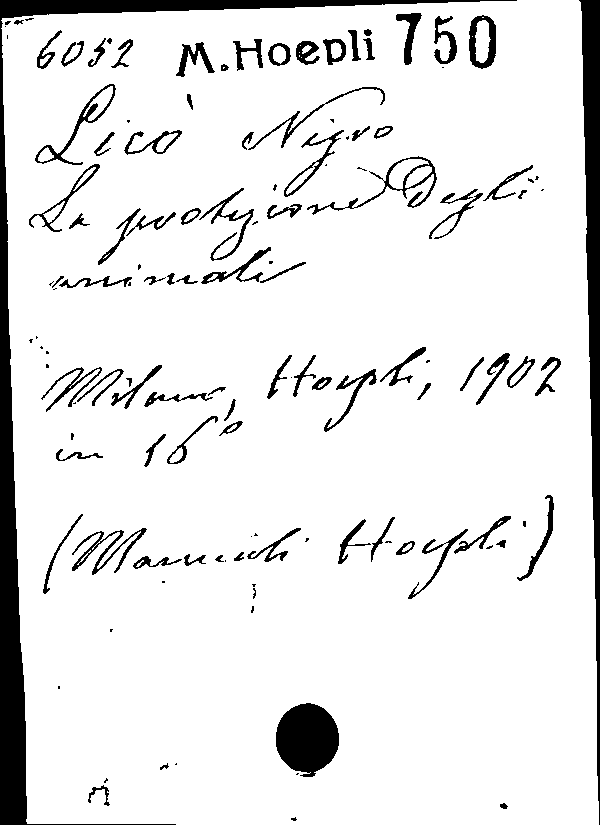 6052 M. Hoepli 750
Licò Nigro
La protezione degli
animali
Milano, Hoepli, 1902
in 16°
(Manuali Hoepli)